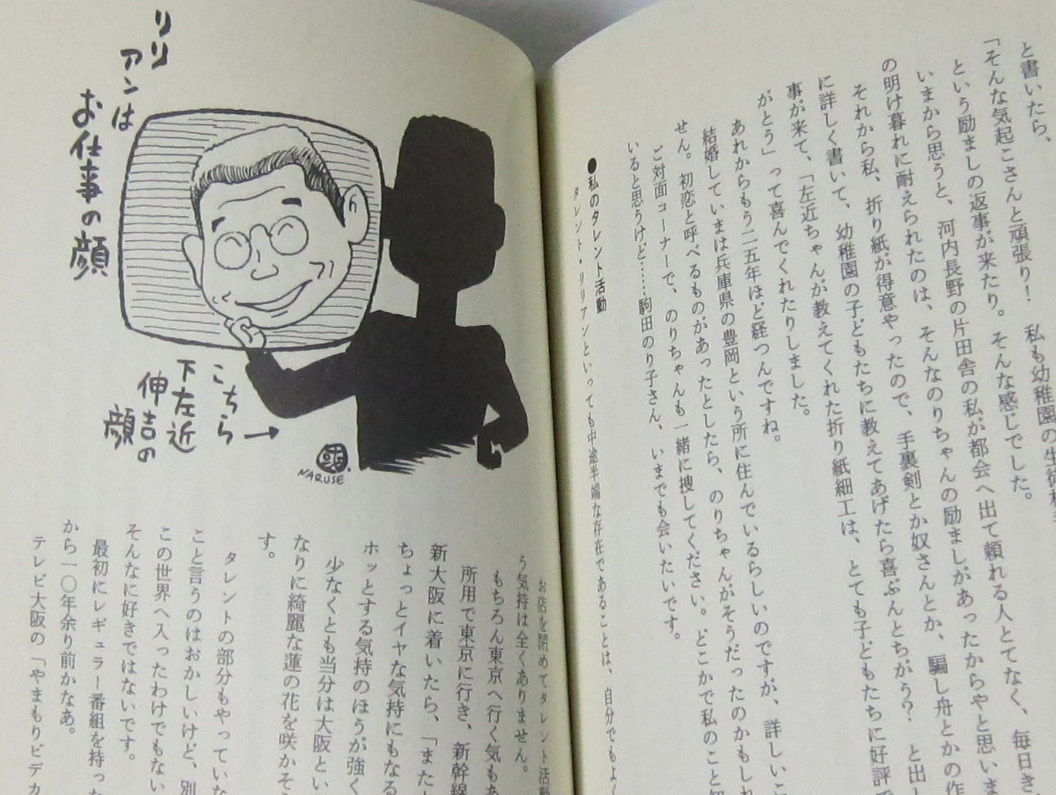 と書いたら、
「そんな気起こさんと頑張り！　私も幼稚園の生徒
という励ましの返事が来たり。そんな感じでした。
いまから思うと、河内長野の片田舎の私が都会へ出て頼れる人とてなく、毎日き
の明け暮れに耐えられたのは、そんなのりちゃんの励ましがあったからやと思いま
それから私、折り紙が得意やったので、手裏剣とか奴さんとか、騙し舟とかの作
に詳しく書いて、幼稚園の子どもたちに教えてあげたら喜ぶんとちがう？　と出し
事が来て、「左近ちゃんが教えてくれた折り紙細工は、とても子どもたちに好評で
がとう」って喜んでくれたりしました。
あれからもう二五年ほど経つんですね。
結婚していまは兵庫県の豊岡という所に住んでいるらしいのですが、詳しいこ
せん。初恋と呼べるものがあったとしたら、のりちゃんがそうだったのかもしれ
ご対面コーナーで、のりちゃんも一緒に捜してください。どこかで私のこと知
いると思うけど……駒田のり子さん、いまでも会いたいです。
●私のタレント活動
タレント・リリアンといっても中途半端な存在であることは、自分でもよ
リリ
アンは
お仕事の顔
こちら→
下左近
伸吉の
顔
NARUSE
お店を閉めてタレント活動
う気持は全くありません。
もちろん東京へ行く気もあ
所用で東京に行き、新幹線
新大阪に着いたら、「また
ちょっとイヤな気持にもなる
ホッとする気持のほうが強く
少なくとも当分は大阪とい
なりに綺麗な蓮の花を咲かそ
す。
タレントの部分もやっていな
こと言うのはおかしいけど、別
この世界へ入ったわけでもない
そんなに好きではないです。
最初にレギュラー番組を持った
から一〇年余り前かなあ。
テレビ大阪の「やまもりビデカ